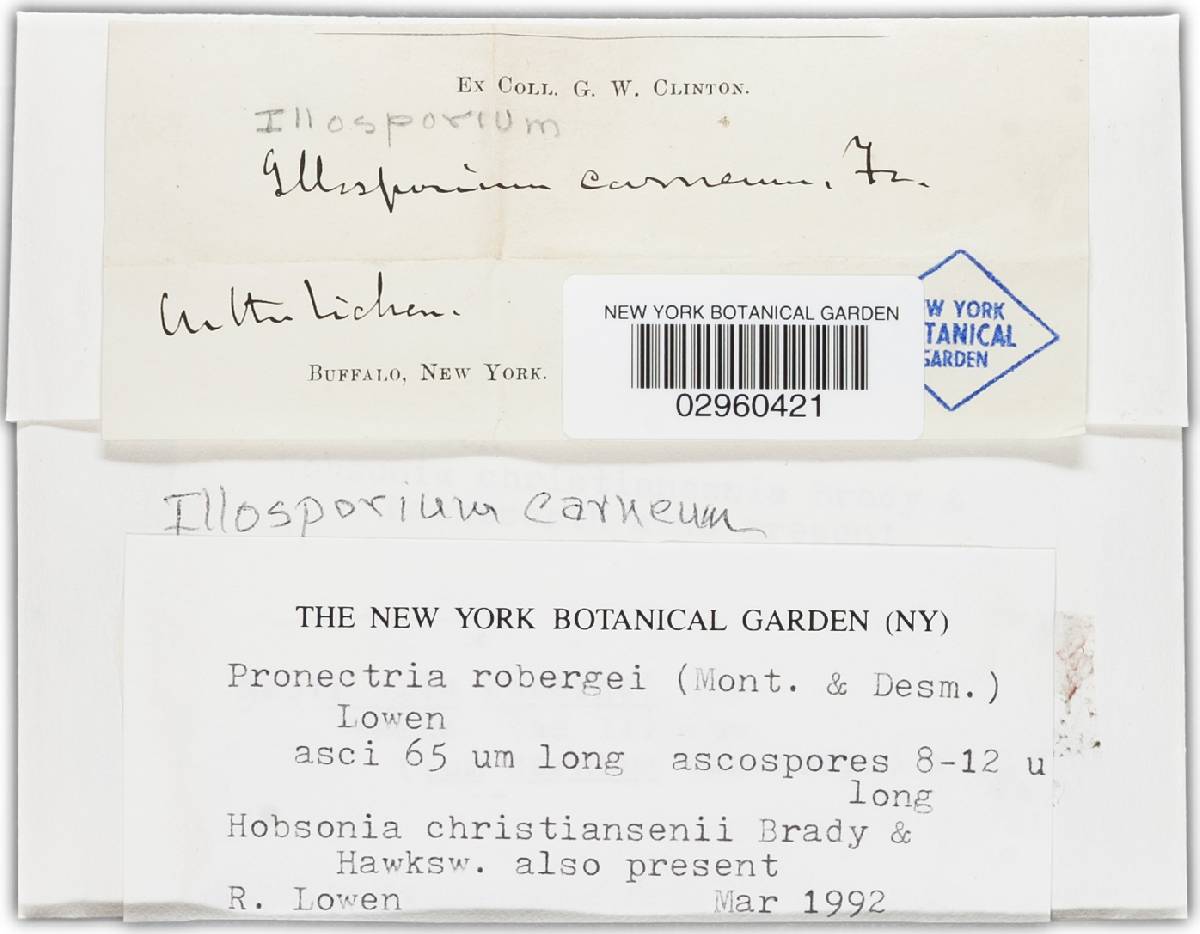 Ex Coll. G. W. Clinton.
Illosporium
Illosporium carneum, Fr.
Lichen.
Buffalo, New York.
NEW YORK BOTANICAL GARDEN
02960421
W YORK
TANICAL
GARDEN
Illosporium carneum
THE NEW YORK BOTANICAL GARDEN (NY)
Pronectria robergei (Mont. & Desm.)
Lowen
asci 65 um long ascospores 8-12 u
long
Hobsonia christiansenii Brady &
Hawksw. also present
R. Lowen Mar 1992